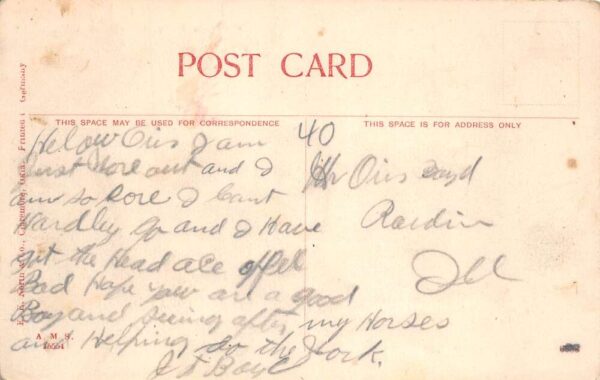 POST CARD
THIS SPACE MAY BE USED FOR CORRESPONDENCE
THIS SPACE IS FOR ADDRESS ONLY
Helow Oris I am
just wore out and I
am so sore I cant
Hardley go and I Have
got the Head ace offel
Bad Hope you are a good
Boy and seeing after my Horses
and Helping do the Work.
40
Mr Oris
Rardin
Ill
Printed in Germany
A. M. S.